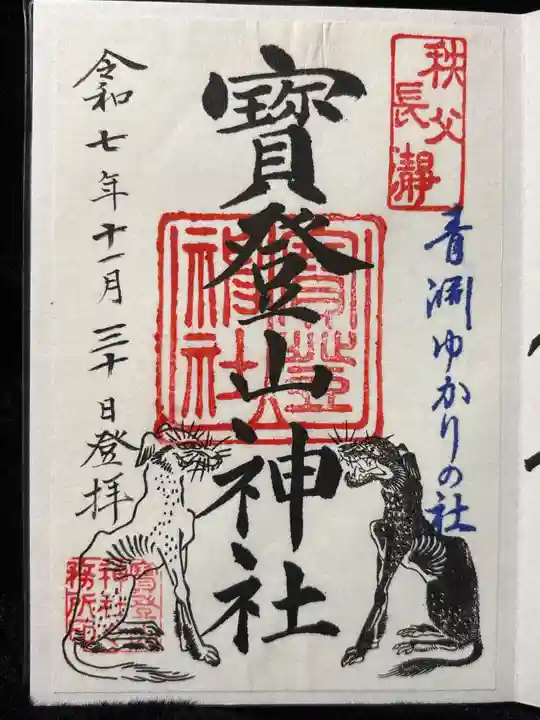 秩父
長瀞
青淵ゆかりの社
寳登山神社
寳登山神社
令和七年十一月三十日登拝
寳登山神社務所印